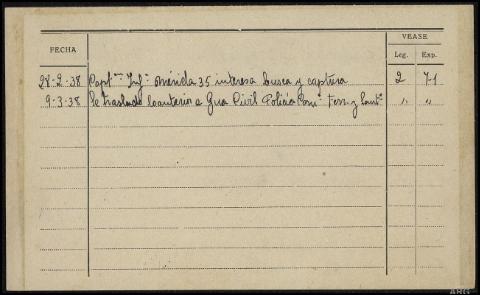 VEASE
FECHA
Leg. Exp.
28-2-38 Capt.ⁿ Inf.ª Mérida 35 interesa busca y captura 2 71
9-3-38 Se traslada lo anterior a Gua Civil Policía Com.ª Ferr. y Sant.º " "
ARG